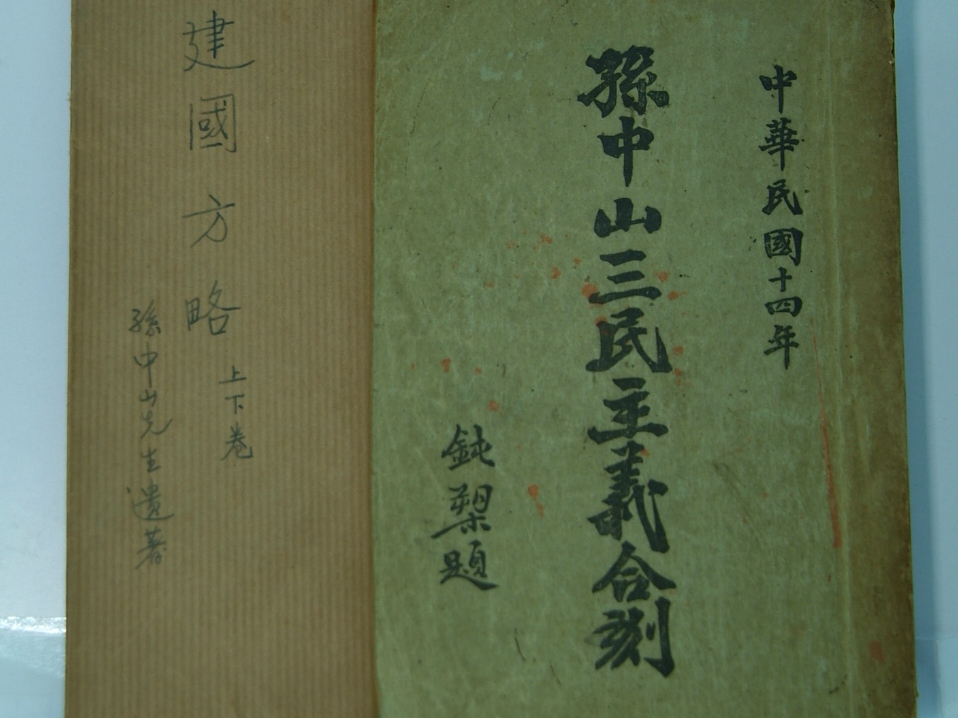 中華民國十四年
孫中山三民主義合刻
鈍槼題
建國方略
上下卷
孫中山先生遺著